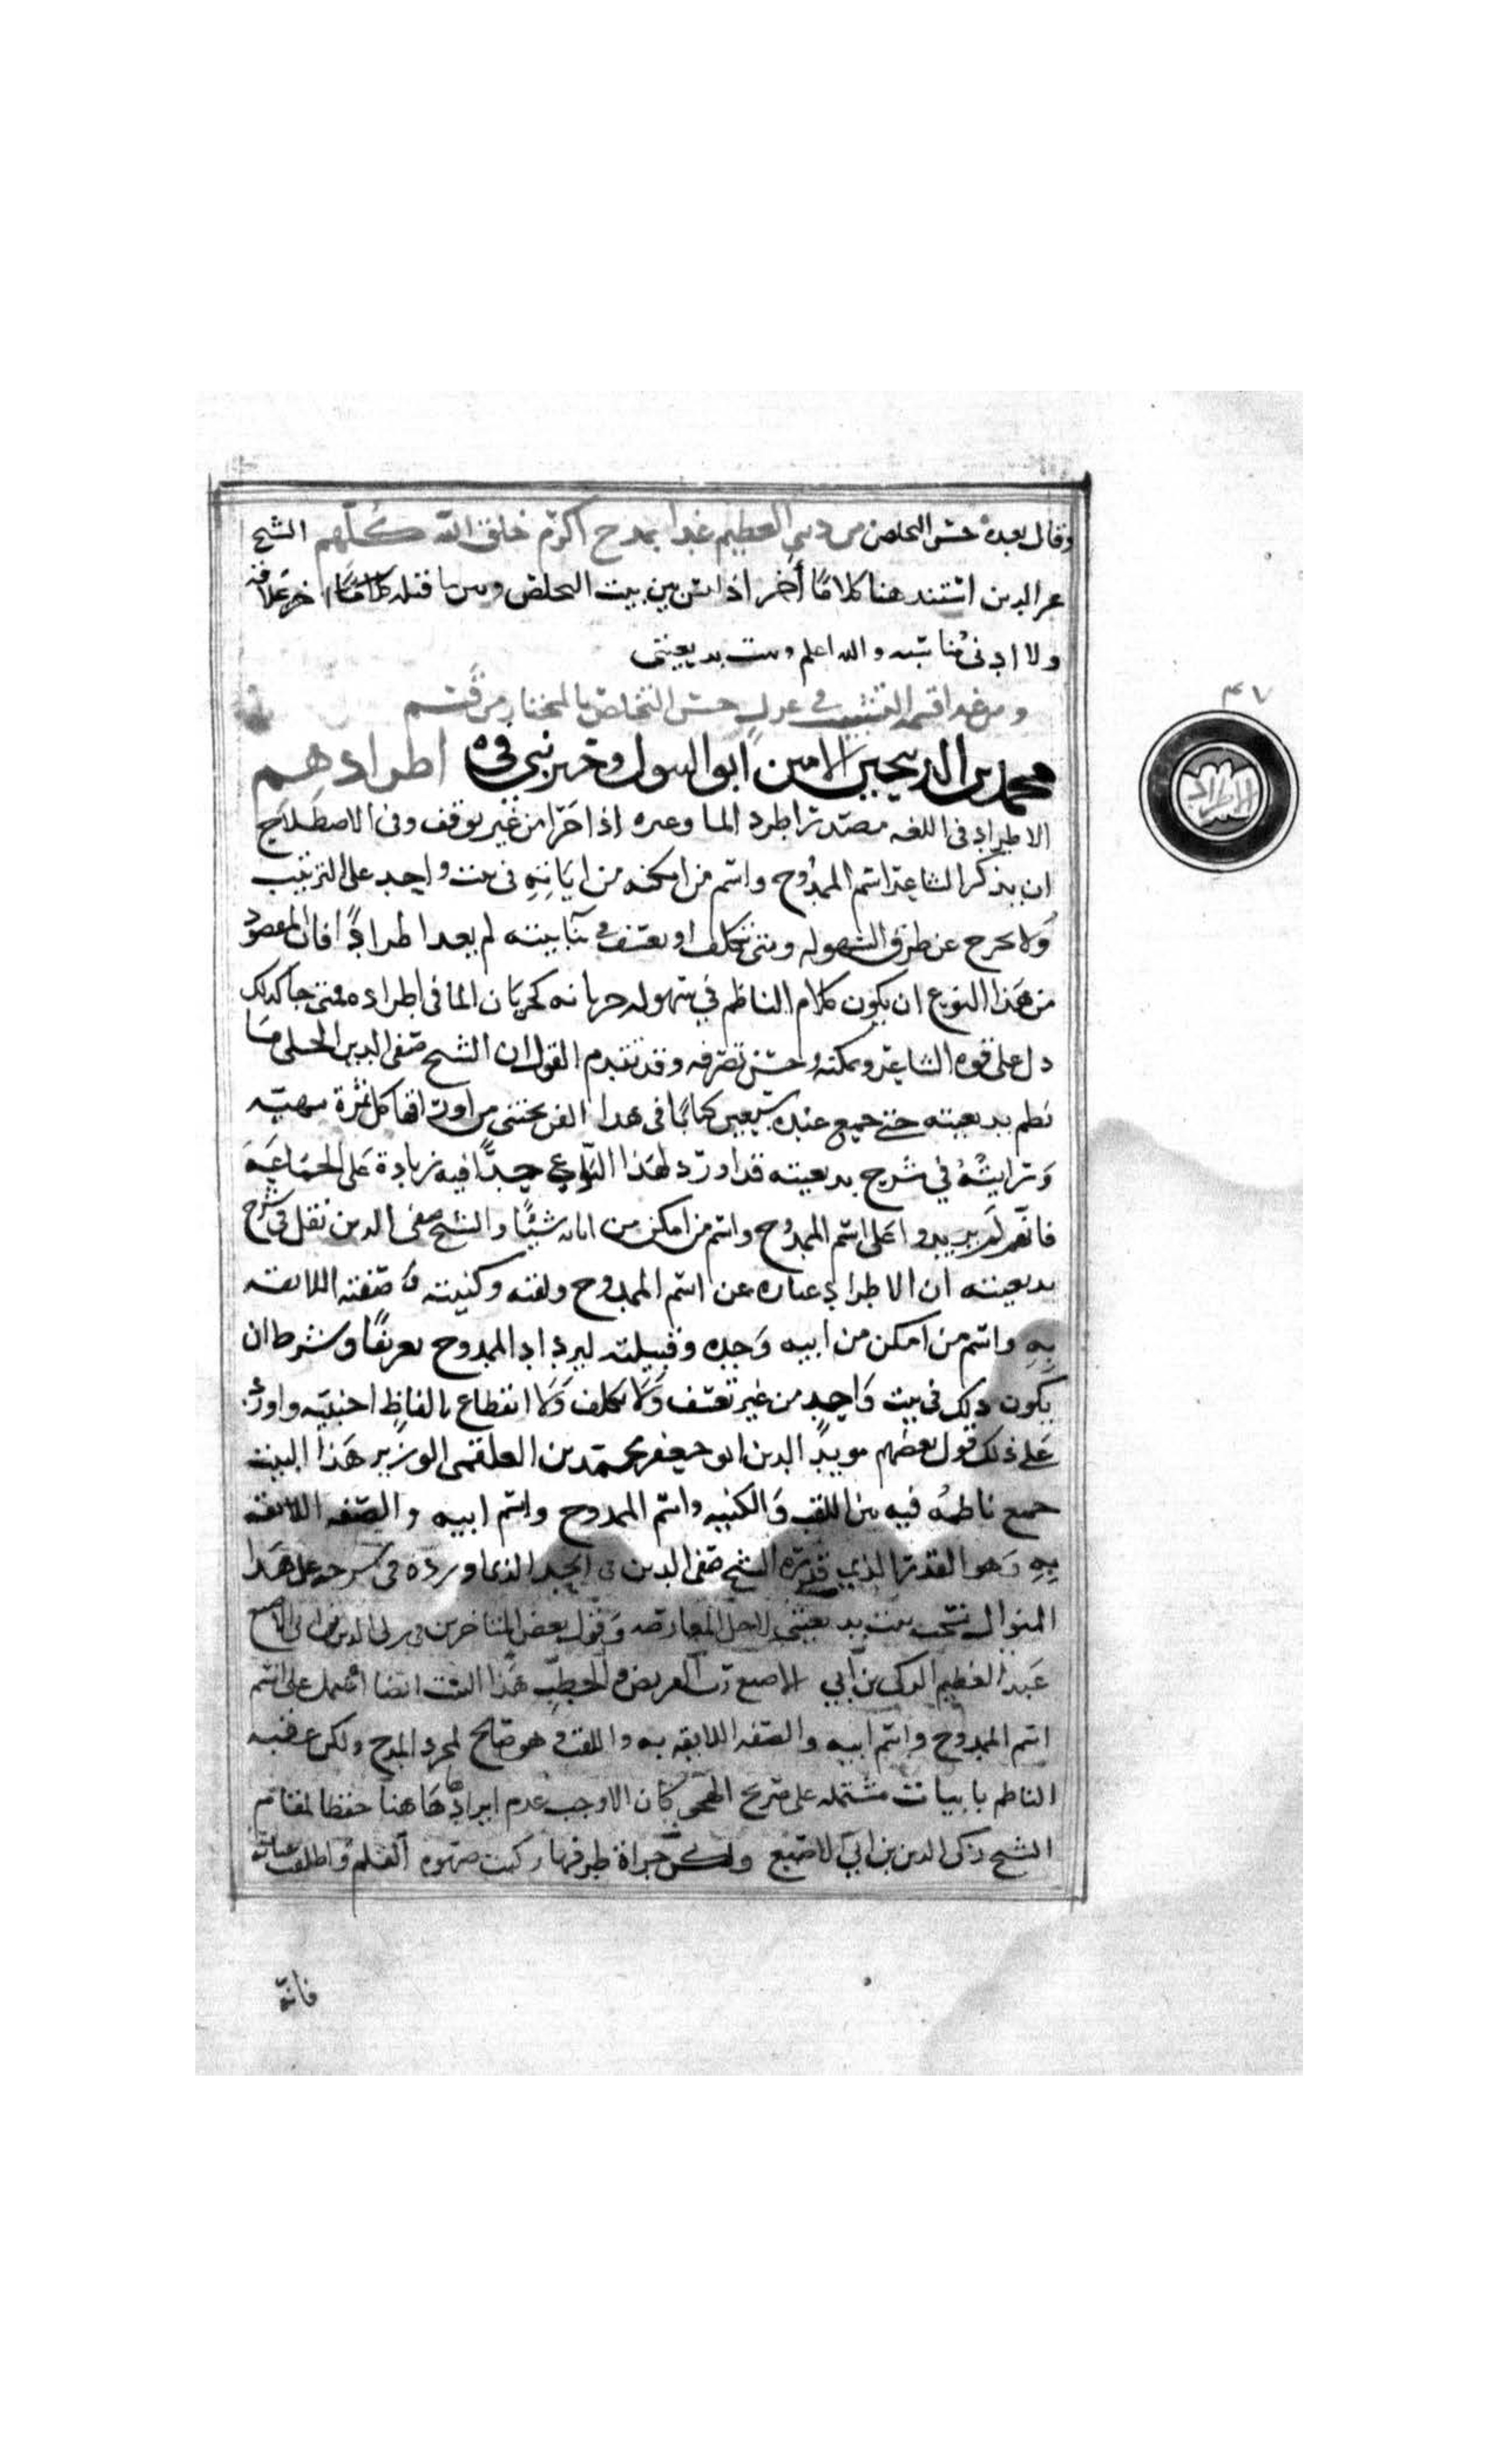 وقال بعده حسن التخلص من ذنبي العظيم غدا بمدح اكرم خلق الله كلهم الشيخ
عز الدين استند هنا كلاما آخر اذ ليس بين بيت التخلص وبين ما قبله علاقة
ولا ادنى مناسبه والله اعلم وبيت بديعيتي
ومن غدا قسمه التشبيب في غزل حسن التخلص بالمختار من قسم
محمد بن الذبيحين الامين ابو البتول خير نبي في اطرادهم
الاطراد في اللغه مصدر اطرد الما وغيره اذا جرا من غير توقف وفي الاصطلاح
ان يذكر الشاعر اسم الممدوح واسم من امكنه من ابايه في بيت واحد على الترتيب
ولا يخرج عن طرق السهوله ومتى تكلف او تعسف في بنا بيته لم يعد اطرادا فان المقصود
من هذا النوع ان يكون كلام الناظم في سهوله جريانه كجريان الما في اطراده فمتى جا كذلك
دل على قوه الشاعر وتمكنه وحسن تصرفه وقد تقدم القول ان الشيخ صفي الدين الحلي ما
نظم بديعيته حتى جمع عنده سبعين كتابا في هذا الفن يجتني من اوراقها كل ثمرة شهيه
ورايته في شرح بديعيته قد اورد لهذا النوع حدا فيه زيادة على الجماعة
فانهم لم يزيدوا على اسم الممدوح واسم من امكن من ابايه شيئا والشيخ صفي الدين نقل في شرح
بديعيته ان الاطراد عباره عن اسم الممدوح ولقبه وكنيته وصفته اللايقه
به واسم من امكن من ابيه وجده وقبيلته ليزداد الممدوح تعريفا وشرط ان
يكون ذلك في بيت واحد من غير تعسف ولا تكلف ولا انقطاع بالفاظ اجنبيه واورد
على ذلك قول بعضهم مويد الدين ابو جعفر محمد بن العلقمي الوزير هذا البيت
جمع ناظمه فيه بين اللقب والكنيه واسم الممدوح واسم ابيه والصفه اللايقه
به وهو القدر الذي قرره الشيخ صفي الدين في الحد الذي اورده في شرحه على هذا
المنوال نسجت بيت بديعيتي لاجل المعارضه وقول بعض المتاخرين في زكي الدين بن ابي الاصبع
عبد العظيم الزكي بن ابي الاصبع رب القريض والخطب هذا البيت ايضا اشتمل على اسم
اسم الممدوح واسم ابيه والصفه اللايقه به واللقب وهو صالح لمجرد المدح ولكن عقبه
الناظم بابيات مشتمله على صريح الهجو كان الاوجب عدم ايرادها هاهنا حفظا لمقام
الشيخ زكي الدين بن ابي الاصبع ولكن جراة طرفها ركبت صهوه القلم واطلقت عنانه
فانه
الاطراد
٤٧